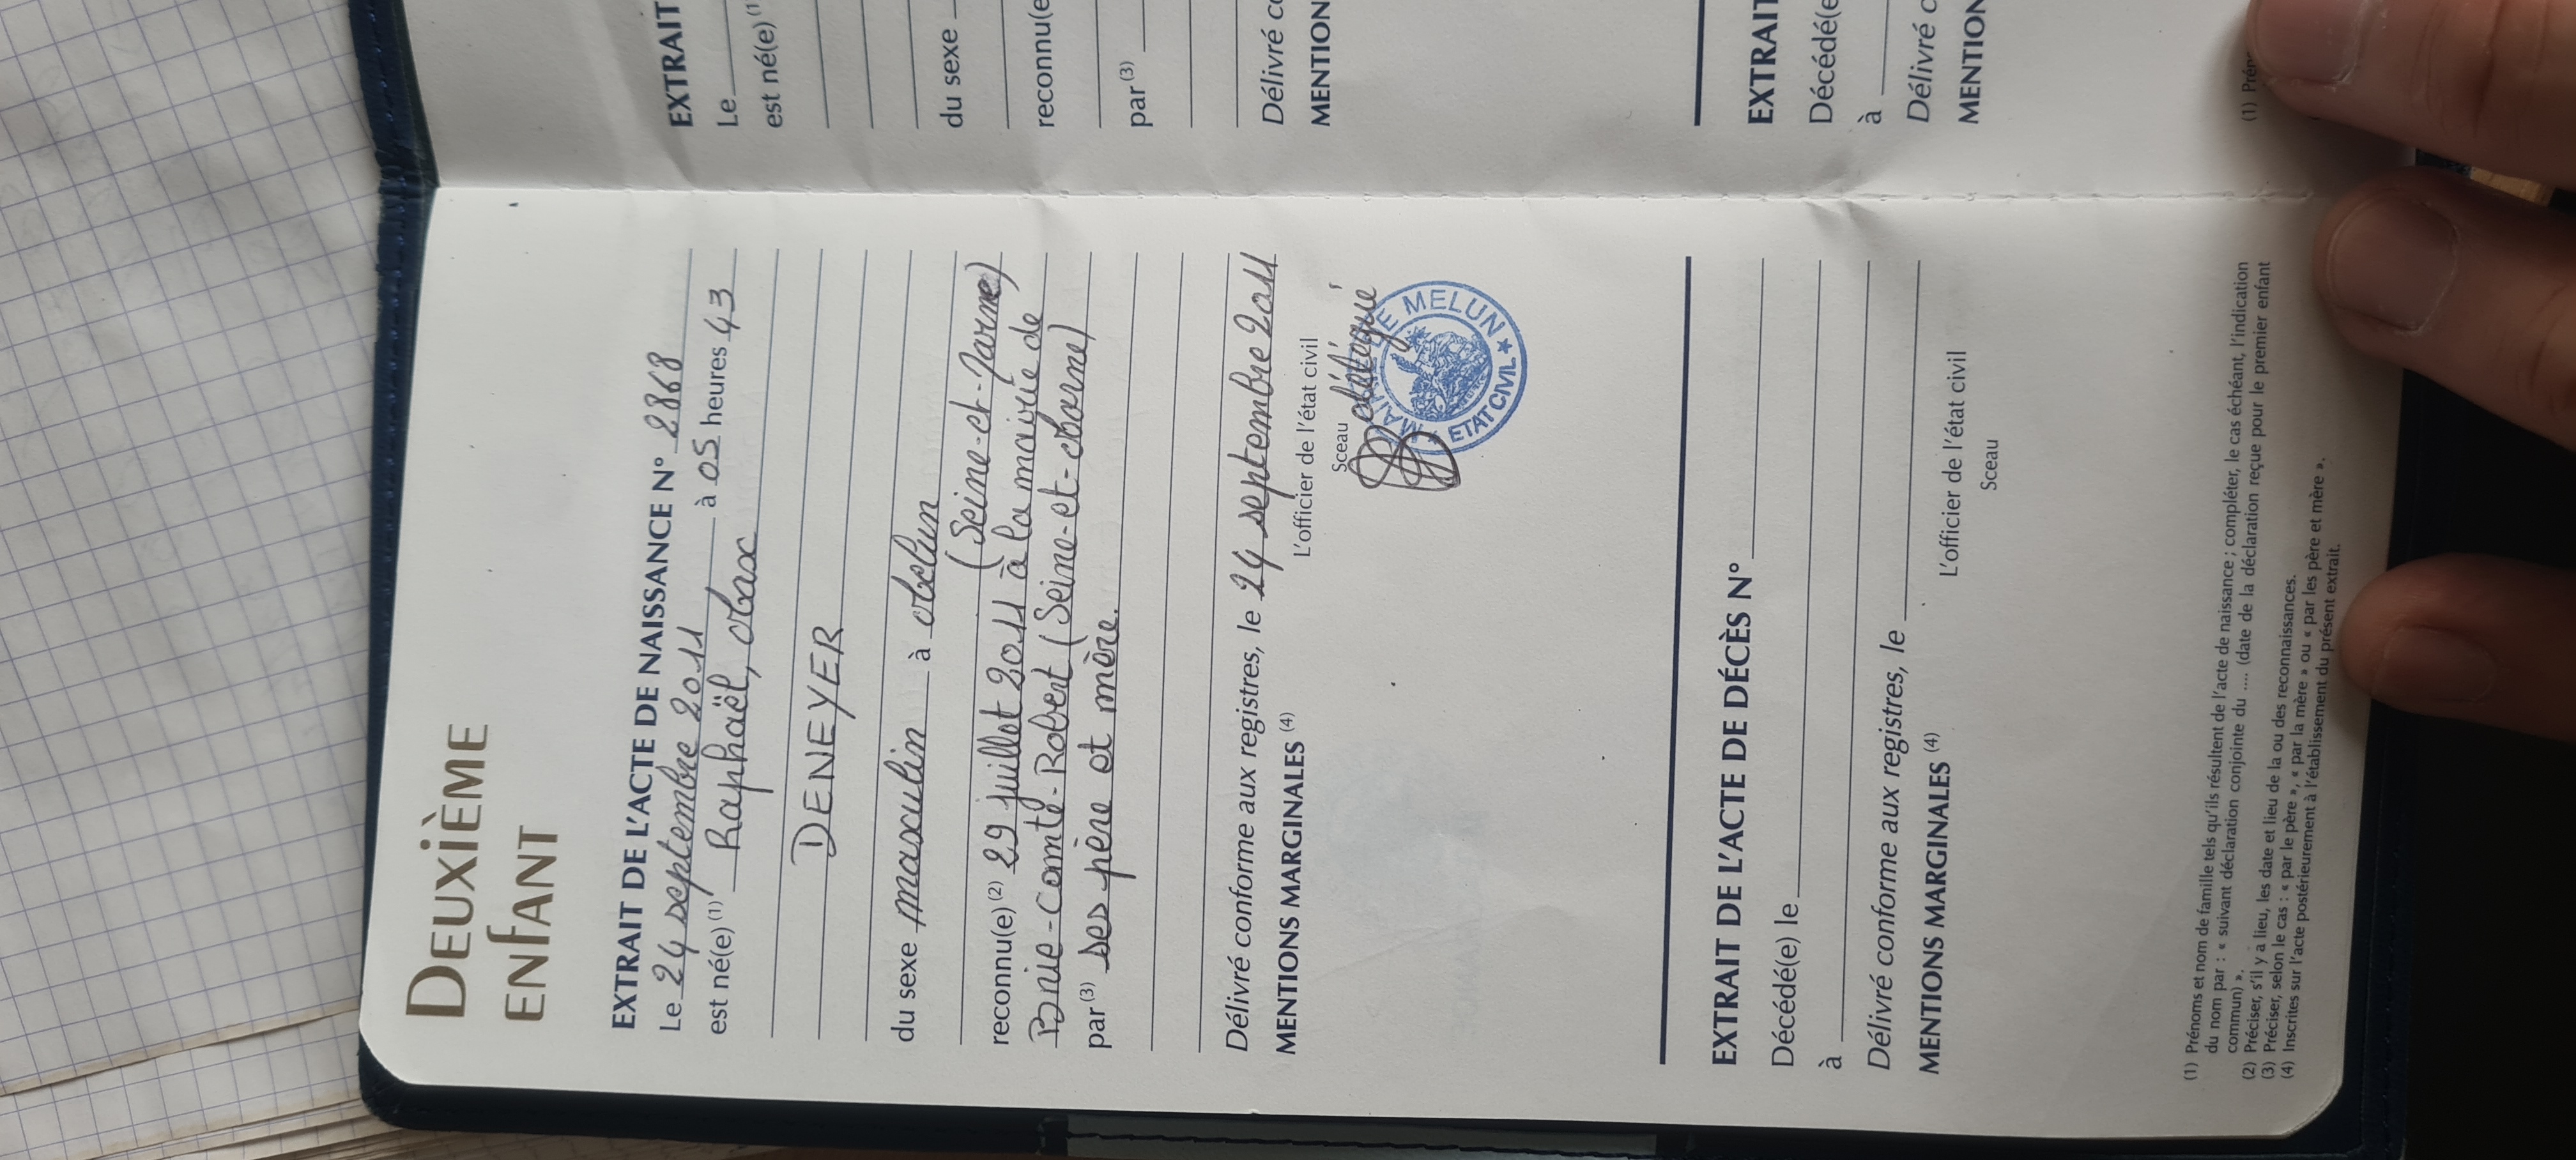 DEUXIÈME
ENFANT
EXTRAIT DE L'ACTE DE NAISSANCE N° 2868
Le 24 septembre 2011 à 05 heures 43
est né(e) (1) Raphaël, Max
DENEYER
du sexe masculin à Melun
(Seine-et-Marne)
reconnu(e) (2) 29 juillet 2011 à la mairie de
Brie-Comte-Robert (Seine-et-Marne)
par (3) ses père et mère.
Délivré conforme aux registres, le 24 septembre 2011
L'officier de l'état civil
MENTIONS MARGINALES (4)
Sceau
délégué
MAIRIE DE MELUN
ETAT CIVIL
EXTRAIT DE L'ACTE DE DÉCÈS N°
Décédé(e) le
à
Délivré conforme aux registres, le
L'officier de l'état civil
MENTIONS MARGINALES (4)
Sceau
(1) Prénoms et nom de famille tels qu'ils résultent de l'acte de naissance ; compléter, le cas échéant, l'indication
du nom par : « suivant déclaration conjointe du .... (date de la déclaration reçue pour le premier enfant
commun) ».
(2) Préciser, s'il y a lieu, les date et lieu de la ou des reconnaissances.
(3) Préciser, selon le cas : « par le père », « par la mère » ou « par les père et mère ».
(4) Inscrites sur l'acte postérieurement à l'établissement du présent extrait.
EXTRAIT
Le
est né(e) (1)
du sexe
reconnu(e
par (3)
Délivré co
MENTION
EXTRAIT
Décédé(e
à
Délivré c
MENTION
(1) Prén